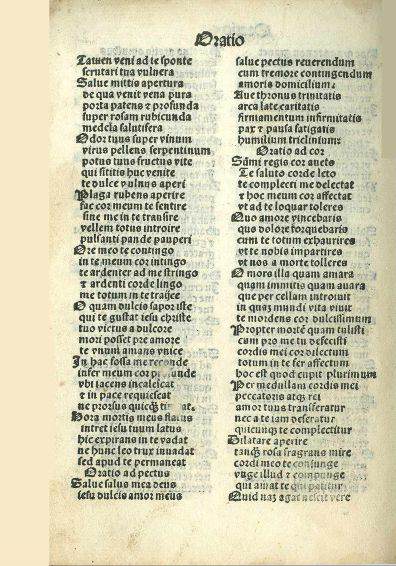 Oratio
Tamen veni ad te sponte
scrutari tua vulnera
Salue mittis apertura
de qua venit vena pura
porta patens ⁊ profunda
super rosam rubicunda
medela salutifera
Odor tuus super vinum
virus pellens serpentinum
potus tuus fructus vite
qui sititis huc venite
te dulce vulnus aperi
Plaga rubens aperire
fac cor meum te sentire
sine me in te transire
vellem totus introire
pulsanti pande pauperi
Ore meo te contingo
in te meum cor intingo
te ardenter ad me stringo
⁊ ardenti corde lingo
me totum in te traijce
O quam dulcis sapor iste
qui te gustat iesu christe
tuo victus a dulcore
mori posset pre amore
te vnum amans vnice
In hac fossa me reconde
infer meum cor
vbi iacens incalescat
⁊ in pace requiescat
ne prorsus
Hora mortis meus flatus
intret iesu tuum latus
hic expirans in te vadat
ne hunc leo trux inuadat
sed apud te permaneat
Oratio ad pectus
Salue salus mea deus
iesu dulcis amor meus
salue pectus reuerendum
cum tremore contingendum
amoris domicilium
Aue thronus trinitatis
arca late caritatis
firmamentum infirmitatis
pax ⁊ pausa fatigatis
humilium triclinium
Oratio ad cor
Sūmi regis cor aueto
Te saluto corde leto
te complecti me delectat
⁊ hoc meum cor affectat
vt ad te loquar toleres
Quo amore vincebaris
quo dolore torquebaris
cum te totum exhaurires
vt te nobis impartires
vt nos a morte tolleres
O mors illa quam amara
quam immitis quam auara
que per cellam introiuit
in qua mundi vita viuit
te mordens cor dulcissimum
Propter mortē quam tulisti
cum pro me tu defecisti
cordis mei cor dilectum
totum in te fer affectum
hoc est quod cupit plurimum
Per medullam cordis mei
peccatoris atq̄ rei
amor tuus transferatur
nec a te iam deseratur
quicunq̄ te complectitur
Dilatare aperire
tanq̄ rosa fragrans mire
cordi meo te coniunge
vnge illud ⁊ compunge
qui amat te qui patitur
Quid naʒ agat nescit vere